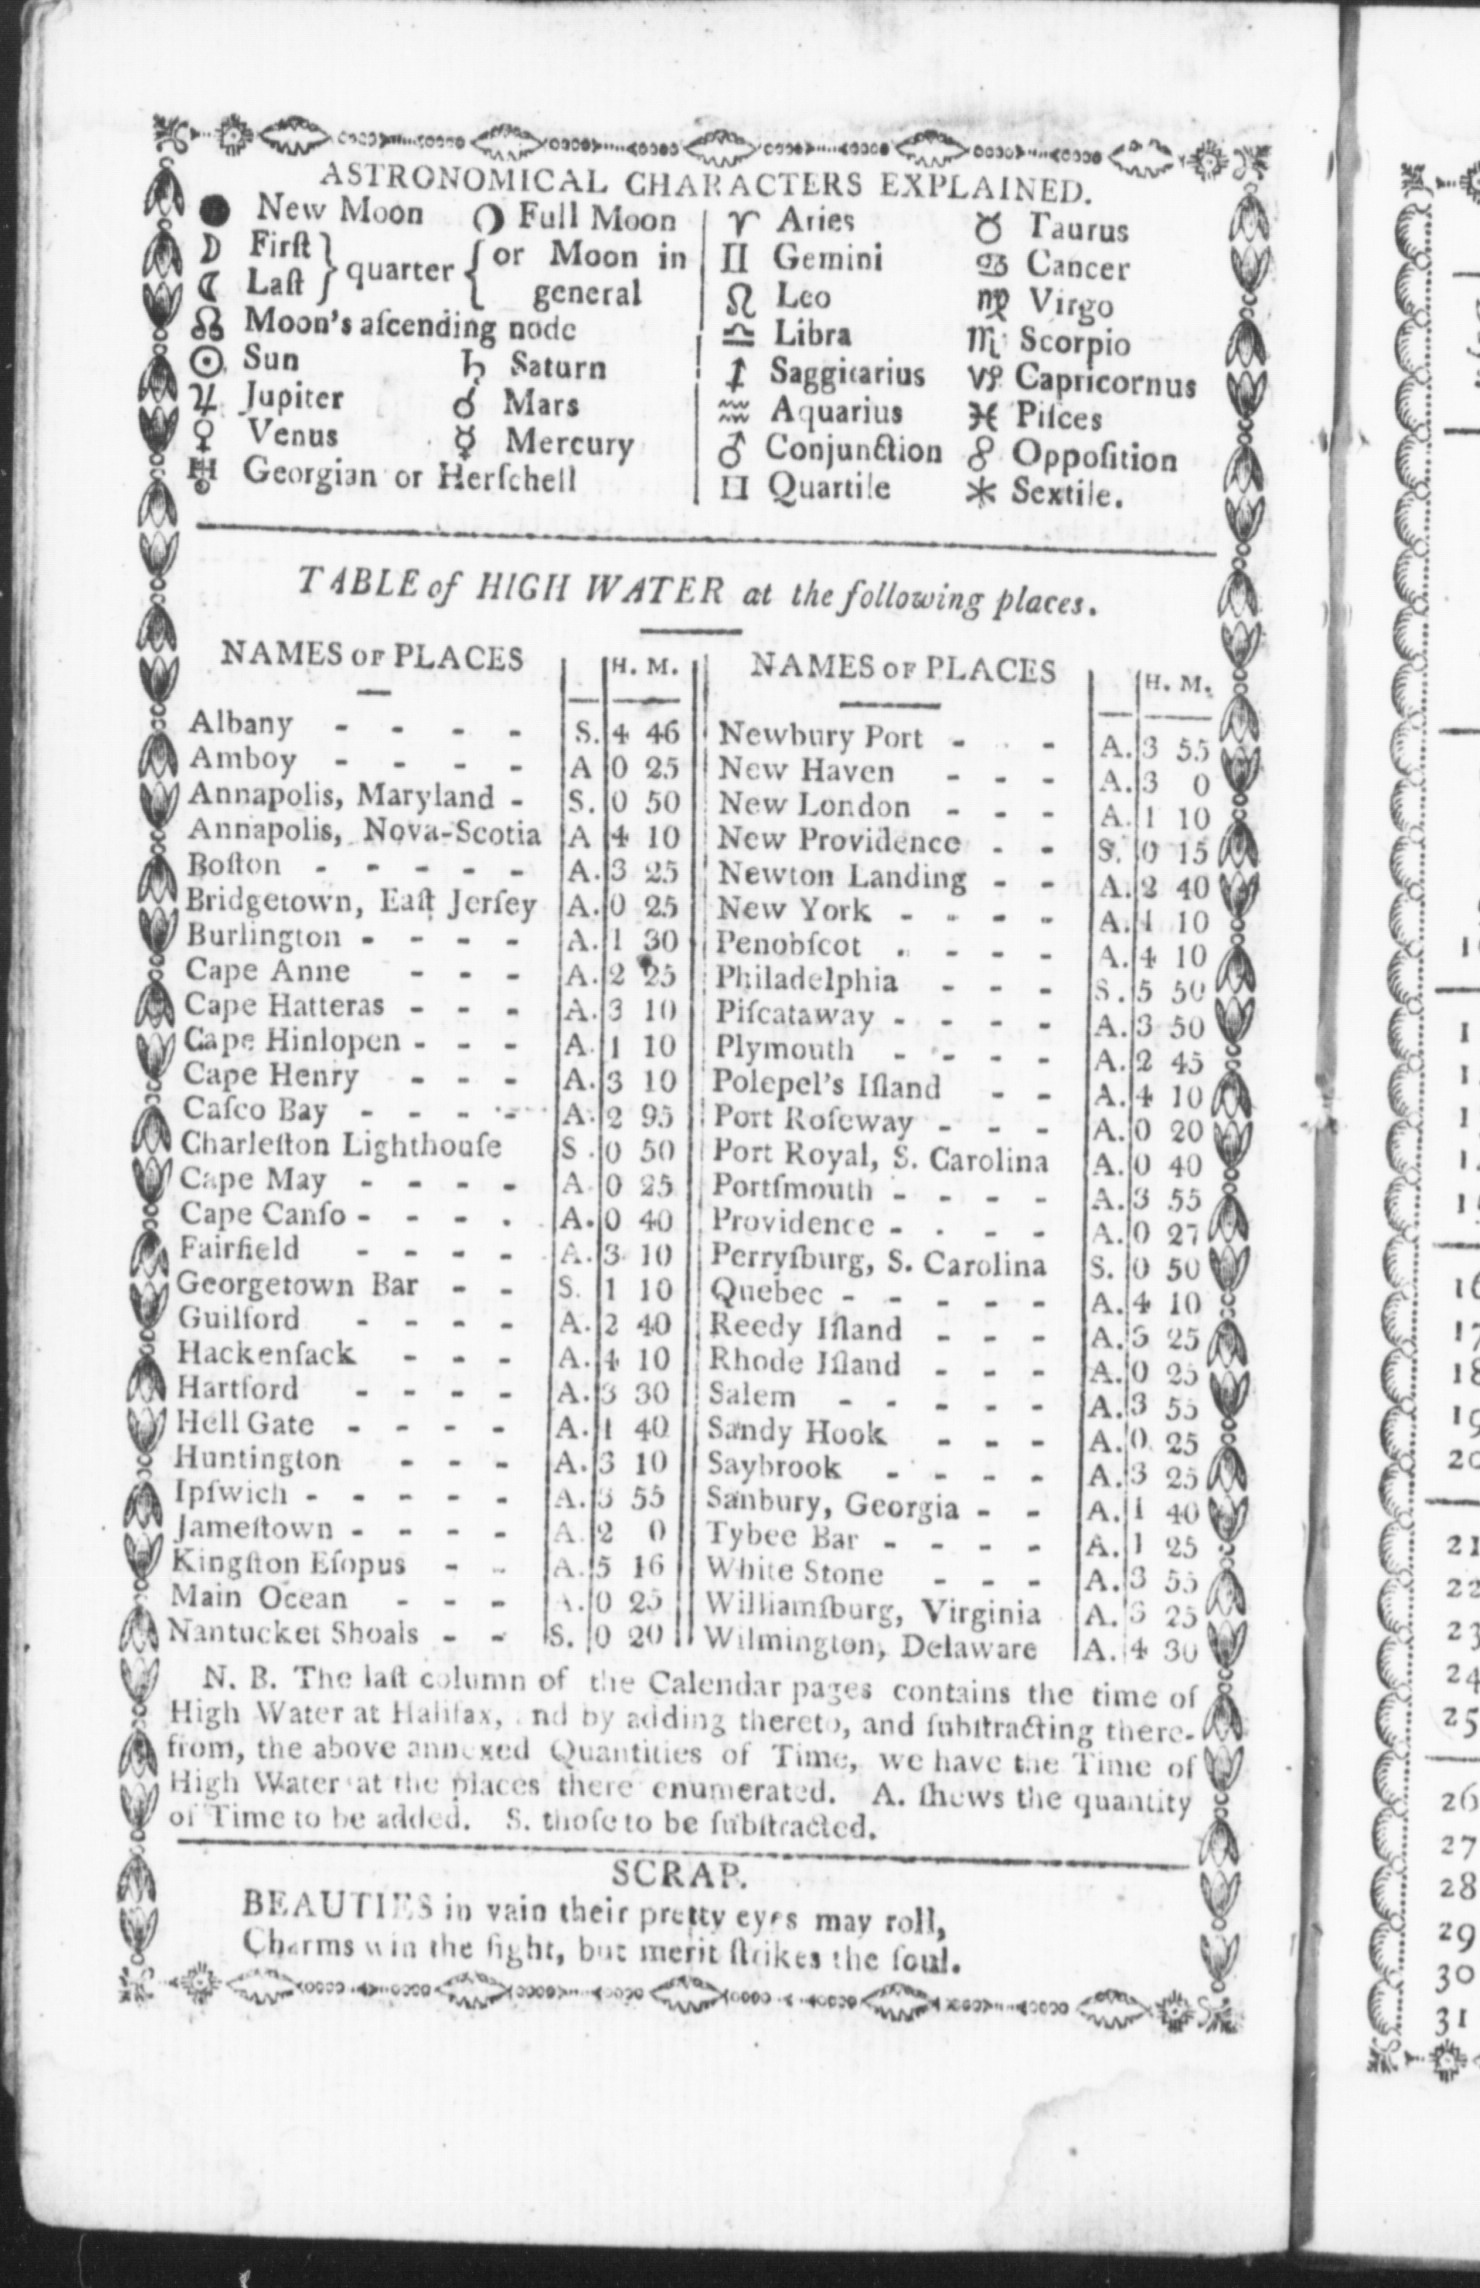 ASTRONOMICAL CHARACTERS EXPLAINED.
● New Moon ❍ Full Moon
☽ Firſt } quarter { or Moon in
☾ Laſt general
☊ Moon's aſcending node
☉ Sun ♄ Saturn
♃ Jupiter ♂ Mars
♀ Venus ☿ Mercury
♅ Georgian or Herſchell
♈ Aries ♉ Taurus
♊ Gemini ♋ Cancer
♌ Leo ♍ Virgo
♎ Libra ♏ Scorpio
♐ Saggitarius ♑ Capricornus
♒ Aquarius ♓ Piſces
☌ Conjunction ☍ Oppoſition
□ Quartile ⚹ Sextile.
TABLE of HIGH WATER at the following places.
NAMES OF PLACES H. M.
Albany - - - - S. 4 46
Amboy - - - - A 0 25
Annapolis, Maryland - S. 0 50
Annapolis, Nova-Scotia A 4 10
Boſton - - - - - A. 3 25
Bridgetown, Eaſt Jerſey A. 0 25
Burlington - - - - A. 1 30
Cape Anne - - - A. 2 25
Cape Hatteras - - - A. 3 10
Cape Hinlopen - - - A. 1 10
Cape Henry - - - A. 3 10
Caſco Bay - - - - A. 2 95
Charleſton Lighthouſe S. 0 50
Cape May - - - - A. 0 25
Cape Canſo - - - - A. 0 40
Fairfield - - - - A. 3 10
Georgetown Bar - - S. 1 10
Guilford - - - - A. 2 40
Hackenſack - - - A. 4 10
Hartford - - - - A. 3 30
Hell Gate - - - - A. 1 40
Huntington - - - A. 3 10
Ipſwich - - - - - A. 3 55
Jameſtown - - - - A. 2 0
Kingſton Eſopus - - A. 5 16
Main Ocean - - - A. 0 25
Nantucket Shoals - - S. 0 20
NAMES OF PLACES H. M.
Newbury Port - - A. 3 55
New Haven - - - A. 3 0
New London - - - A. 1 10
New Providence - - S. 0 15
Newton Landing - - A. 2 40
New York - - - - A. 1 10
Penobſcot - - - - A. 4 10
Philadelphia - - - S. 5 50
Piſcataway - - - - A. 3 50
Plymouth - - - - A. 2 45
Polepel's Iſland - - A. 4 10
Port Roſeway - - - A. 0 20
Port Royal, S. Carolina A. 0 40
Portſmouth - - - - A. 3 55
Providence - - - - A. 0 27
Perryſburg, S. Carolina S. 0 50
Quebec - - - - - A. 4 10
Reedy Iſland - - - A. 25
Rhode Iſland - - - A. 0 25
Salem - - - - - A. 3 55
Sandy Hook - - - A. 0 25
Saybrook - - - - A. 3 25
Sanbury, Georgia - - A. 1 40
Tybee Bar - - - - A. 1 25
White Stone - - - A. 3 55
Williamſburg, Virginia A. 25
Wilmington, Delaware A. 4 30
N. B. The laſt column of the Calendar pages contains the time of
High Water at Halifax, and by adding thereto, and ſubſtracting there-
from, the above annexed Quantities of Time, we have the Time of
High Water at the places there enumerated. A. ſhews the quantity
of Time to be added. S. thoſe to be ſubſtracted.
SCRAP.
BEAUTIES in vain their pretty eyes may roll,
Charms win the ſight, but merit ſtrikes the ſoul.
16
17
18
19
20
21
22
23
24
25
26
27
28
29
30
31